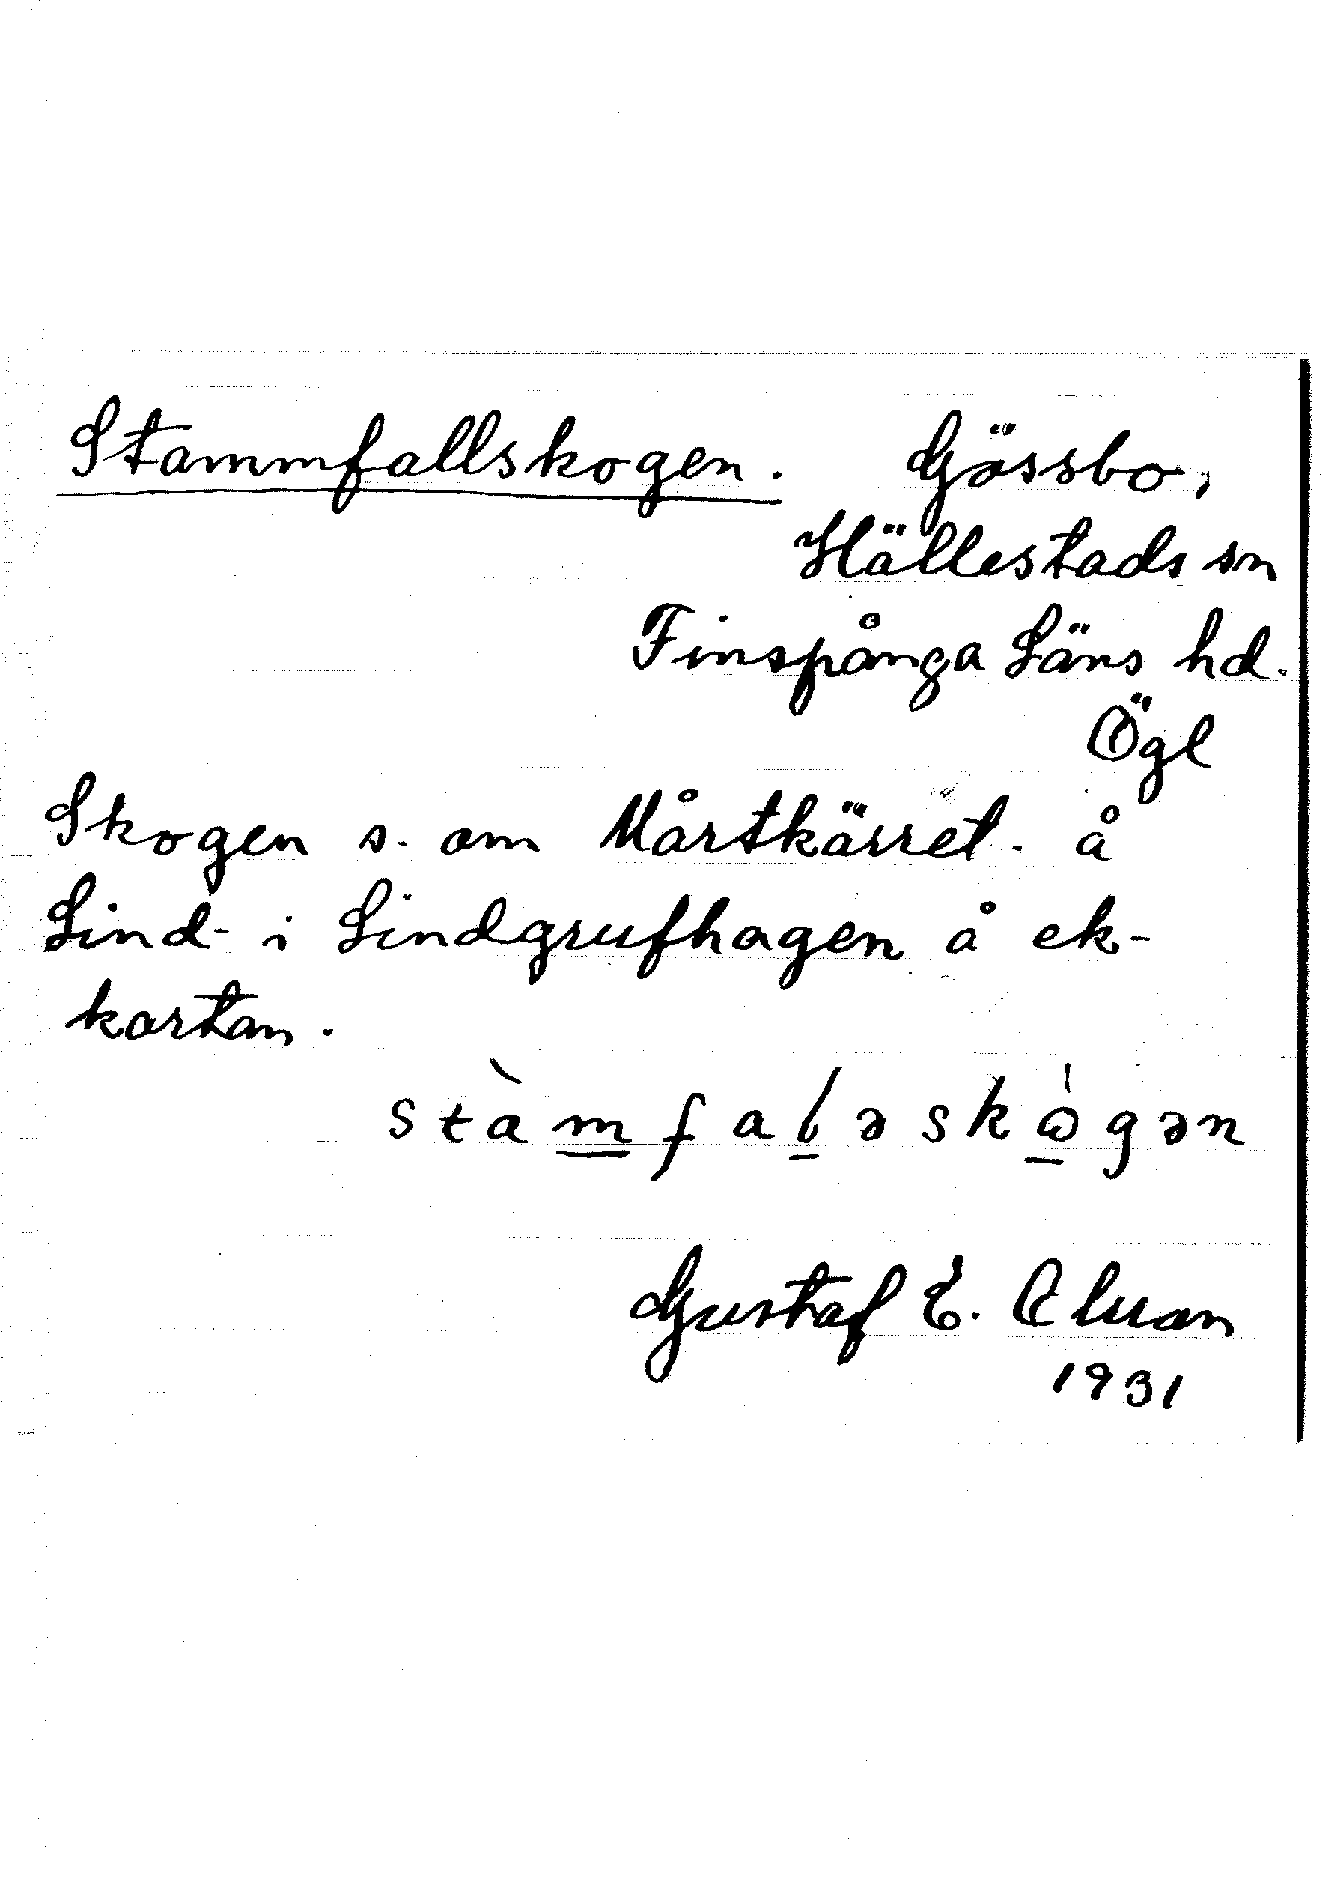 Stammfallskogen. Gössbo,
Hällestads sn
Finspånga Läns hd.
Ögl
Skogen s. om Mårtkärret. å
Lind- i Lindgrufhagen å ek-
kartan.
stàmfaləskògən
Gustaf E.
1931